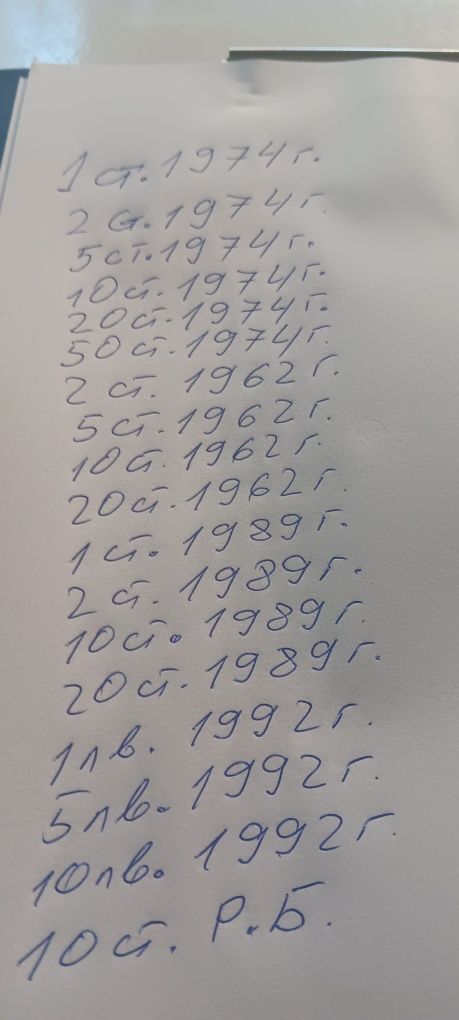 1 ст. 1974 г.
2 ст. 1974 г.
5 ст. 1974 г.
10 ст. 1974 г.
20 ст. 1974 г.
50 ст. 1974 г.
2 ст. 1962 г.
5 ст. 1962 г.
10 ст. 1962 г.
20 ст. 1962 г.
1 ст. 1989 г.
2 ст. 1989 г.
10 ст. 1989 г.
20 ст. 1989 г.
1 лв. 1992 г.
5 лв. 1992 г.
10 лв. 1992 г.
10 ст. Р.Б.